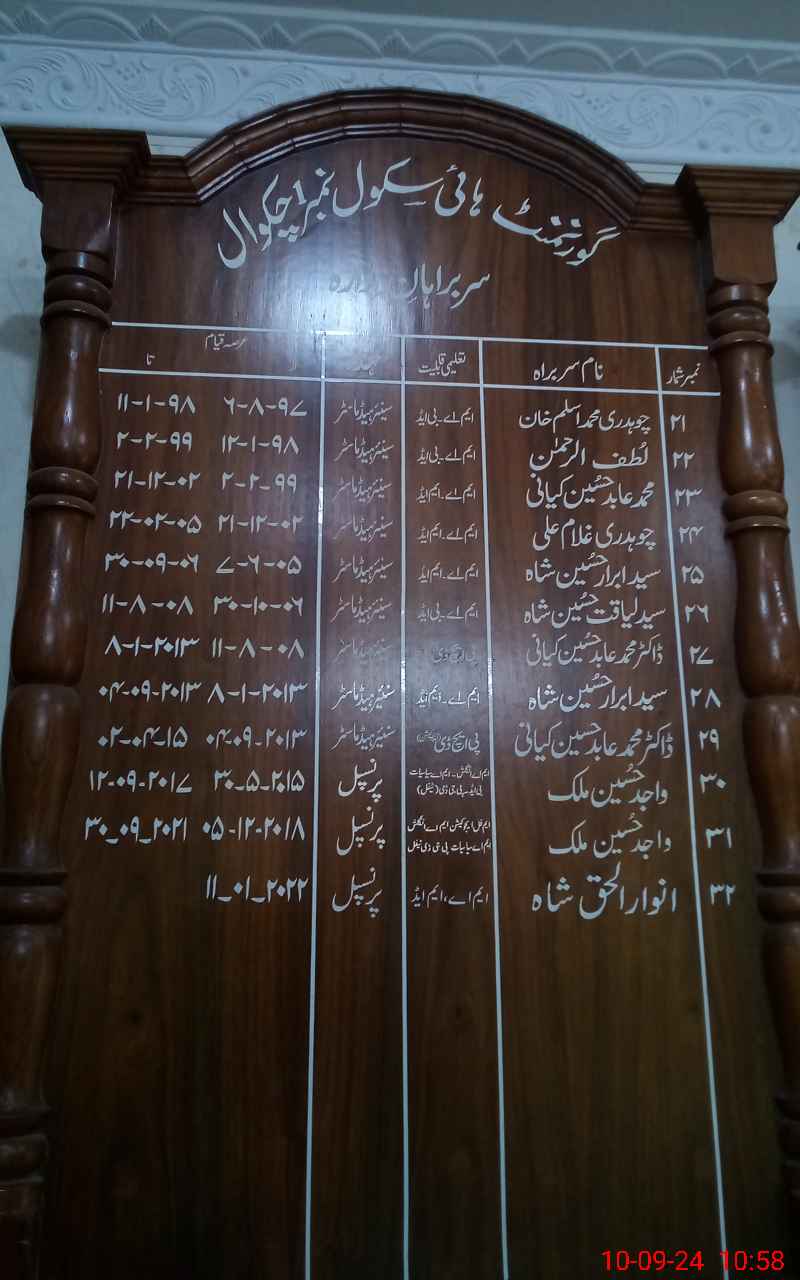 گورنمنٹ ہائی سکول نمبر1 چکوال
سربراہانِ ادارہ
نمبر شمار نام سربراہ تعلیمی قابلیت عہدہ عرصہ قیام
تا
۲۱ چوہدری محمد اسلم خان ایم اے۔ بی ایڈ سینئر ہیڈماسٹر ۶-۸-۹۷ ۱۱-۱-۹۸
۲۲ لُطف الرحمٰن ایم اے۔ بی ایڈ سینئر ہیڈماسٹر ۱۲-۱-۹۸ ۲-۲-۹۹
۲۳ محمد عابد حسین کیانی ایم اے۔ ایم ایڈ سینئر ہیڈماسٹر ۲-۲-۹۹ ۲۱-۱۲-۰۲
۲۴ چوہدری غلام علی ایم اے۔ ایم ایڈ سینئر ہیڈماسٹر ۲۱-۱۲-۰۲ ۲۲-۰۲-۰۵
۲۵ سید ابرار حسین شاہ ایم اے۔ ایم ایڈ سینئر ہیڈماسٹر ۷-۶-۰۵ ۳۰-۰۹-۰۶
۲۶ سید لیاقت حسین شاہ ایم اے۔ بی ایڈ سینئر ہیڈماسٹر ۳۰-۱۰-۰۶ ۱۱-۸-۰۸
۲۷ ڈاکٹر محمد عابد حسین کیانی پی ایچ ڈی سینئر ہیڈماسٹر ۱۱-۸-۰۸ ۸-۱-۲۰۱۳
۲۸ سید ابرار حسین شاہ ایم اے۔ ایم ایڈ سینئر ہیڈماسٹر ۸-۱-۲۰۱۳ ۰۴-۰۹-۲۰۱۳
۲۹ ڈاکٹر محمد عابد حسین کیانی پی ایچ ڈی سینئر ہیڈماسٹر ۰۴-۰۹-۲۰۱۳ ۰۲-۰۴-۱۵
۳۰ واجد حسین ملک ایم اے انگلش۔ ایم اے سیاسیات پرنسپل ۳۰-۵-۲۰۱۵ ۱۲-۰۹-۲۰۱۷
۳۱ واجد حسین ملک ایم اے انگلش پرنسپل ۰۵-۱۲-۲۰۱۸ ۳۰_۰۹_۲۰۲۱
ایم اے سیاسیات
۳۲ انوار الحق شاہ ایم اے، ایم ایڈ پرنسپل ۱۱_۰۱_۲۰۲۲
10-09-24 10:58